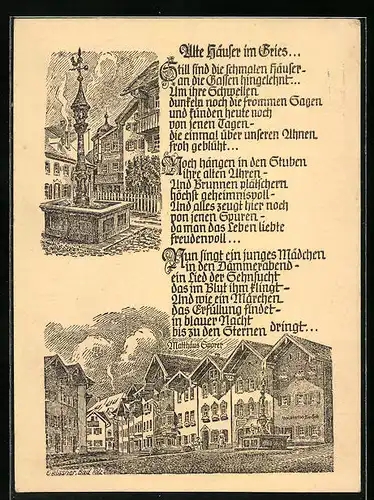 Alte Häuser im Gries...
Still sind die schmalen Häuser-
an die Gassen hingelehnt...
Um ihre Schwellen
dunkeln noch die frommen Sagen
und künden heute noch
von jenen Tagen-
die einmal über unseren Ahnen
froh geblüht...
Noch hängen in den Stuben
ihre alten Uhren-
Und Brunnen plätschern
höchst geheimnisvoll-
Und alles zeugt hier noch
von jenen Spuren-
da man das Leben liebte
freudenvoll...
Nun singt ein junges Mädchen
in den Dämmerabend-
ein Lied der Sehnsucht
das im Blut ihm klingt-
Und wie ein Märchen
das Erfüllung findet-
in blauer Nacht
bis zu den Sternen dringt...
Matthäus
Bad Tölz